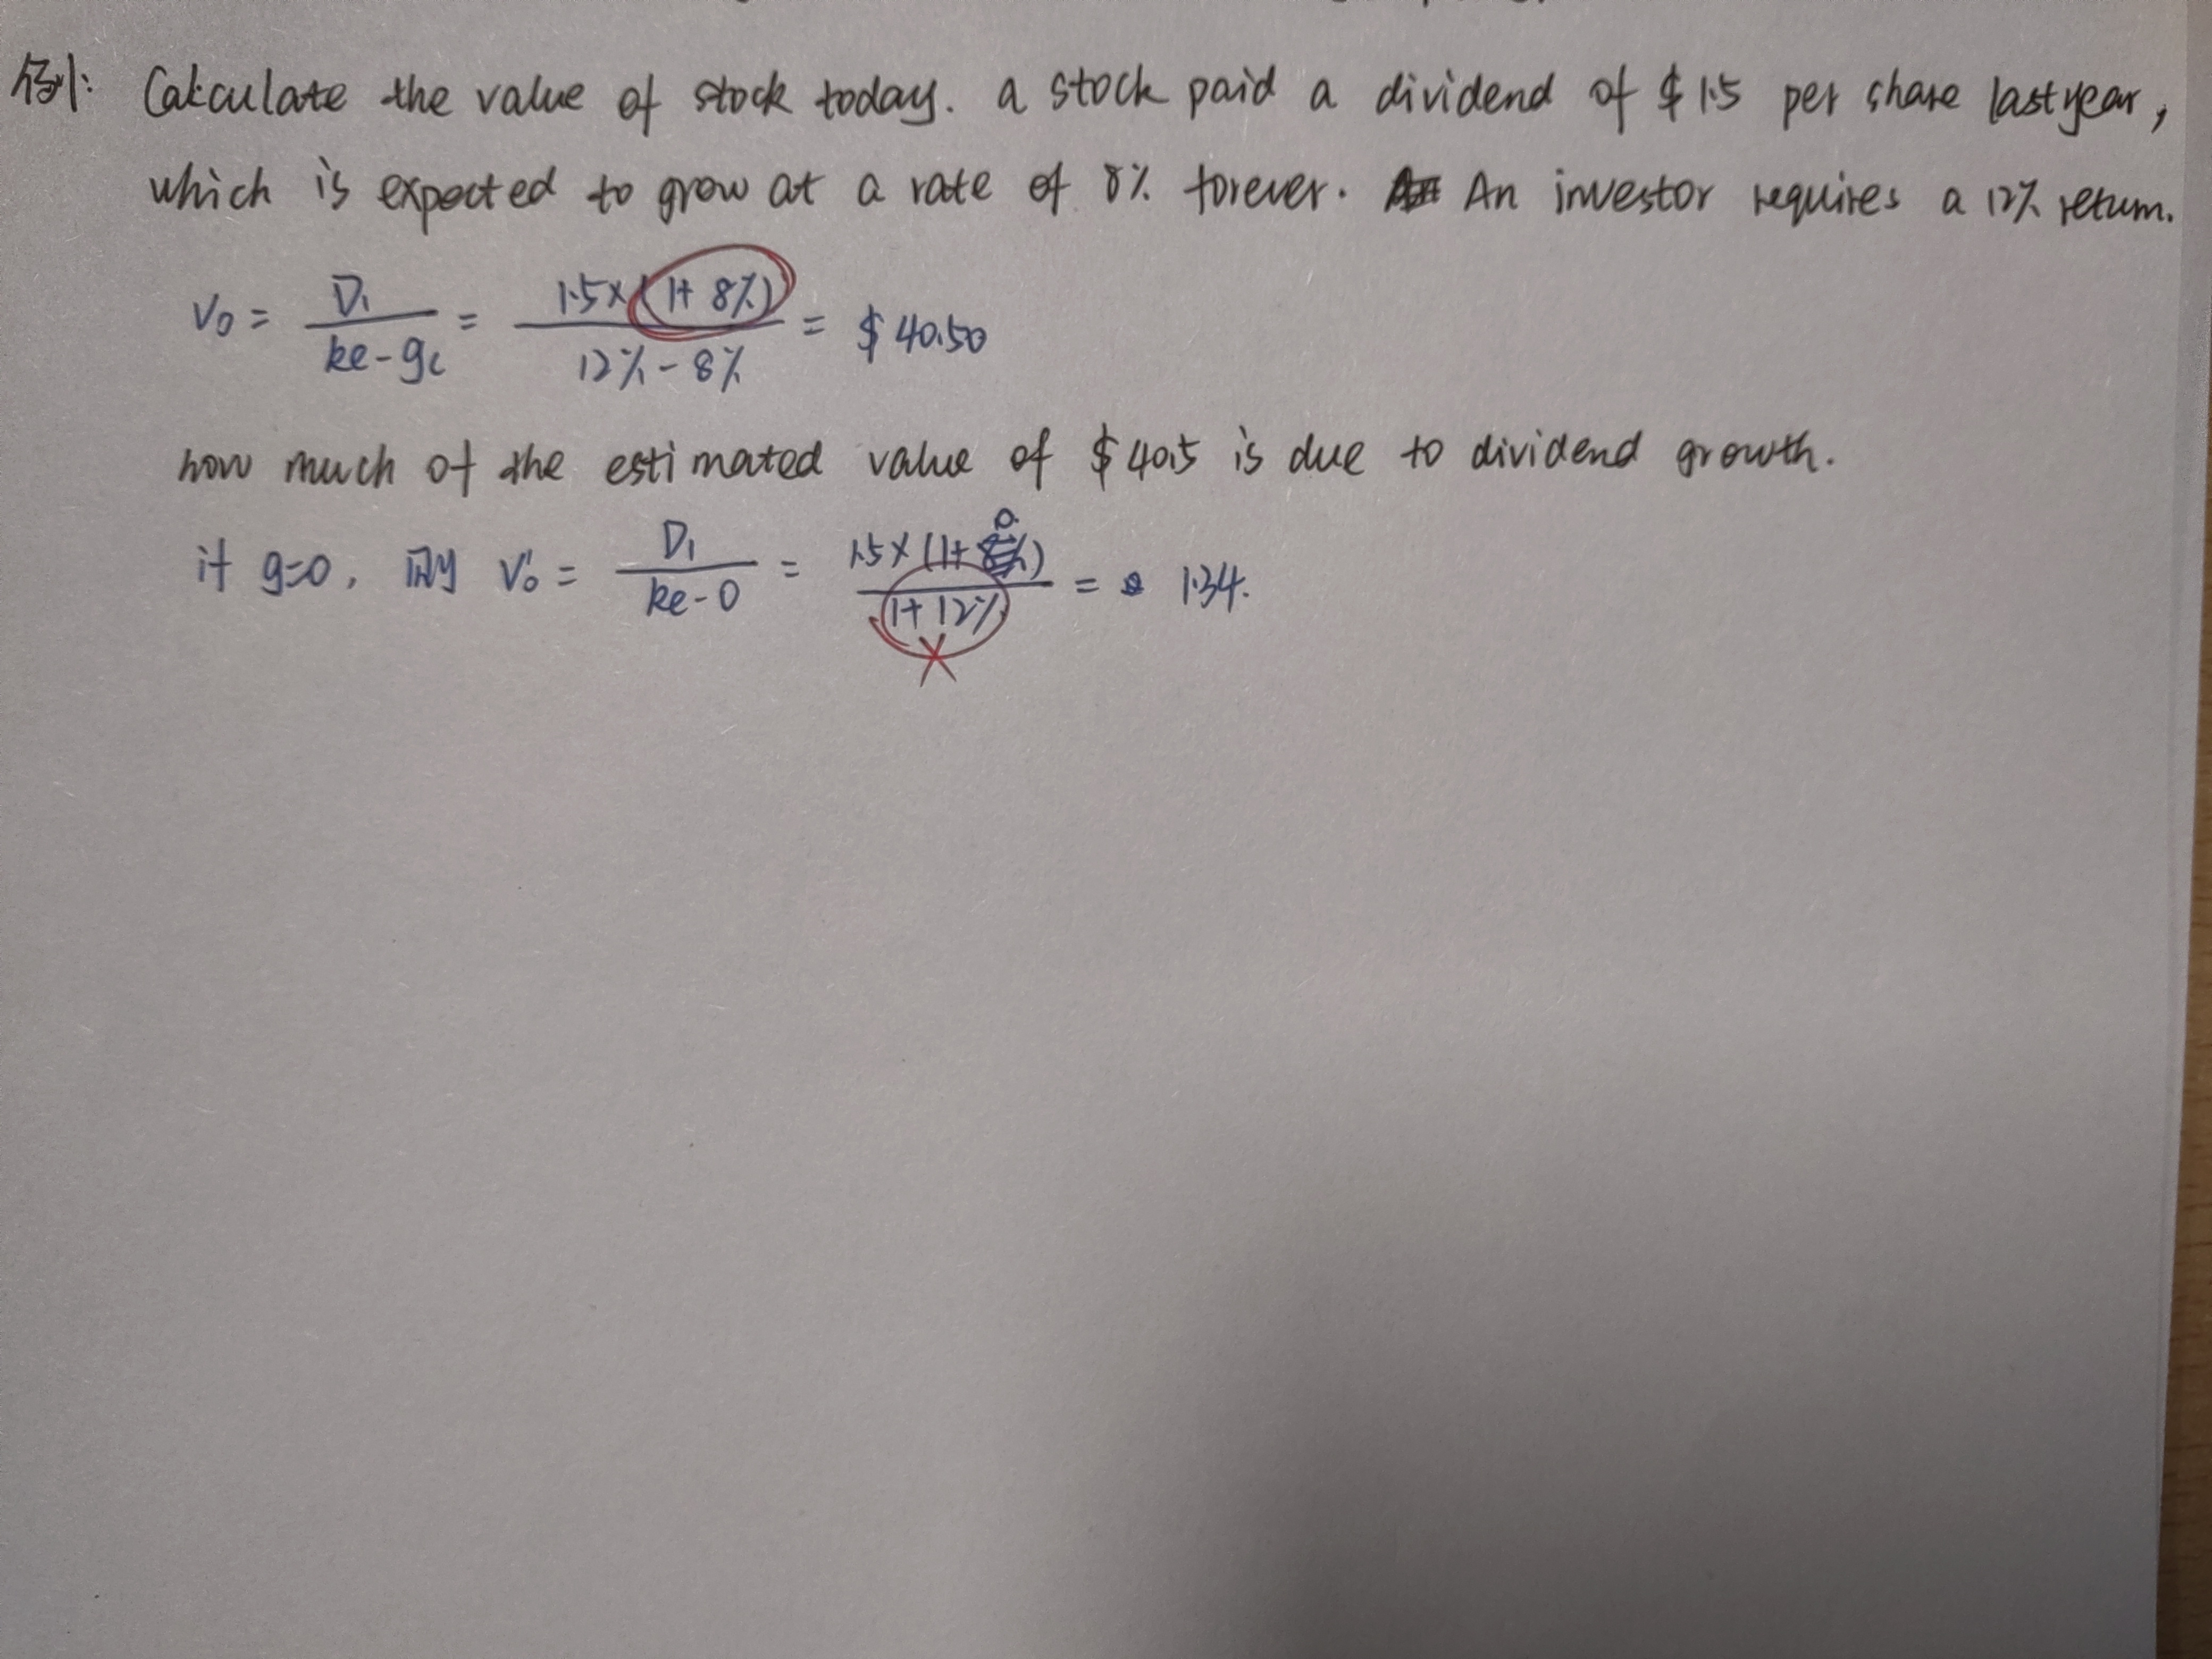 例1: Calculate the value of stock today. a stock paid a dividend of $1.5 per share last year,
which is expected to grow at a rate of 8% forever. An investor requires a 12% return.
V0 = D1 / (ke - gc) = 1.5×(1+8%) / (12% - 8%) = $40.50
how much of the estimated value of $40.5 is due to dividend growth.
if g=0, 则 V0' = D1 / (ke - 0) = 1.5×(1+0) / (1+12%) = 1.34.